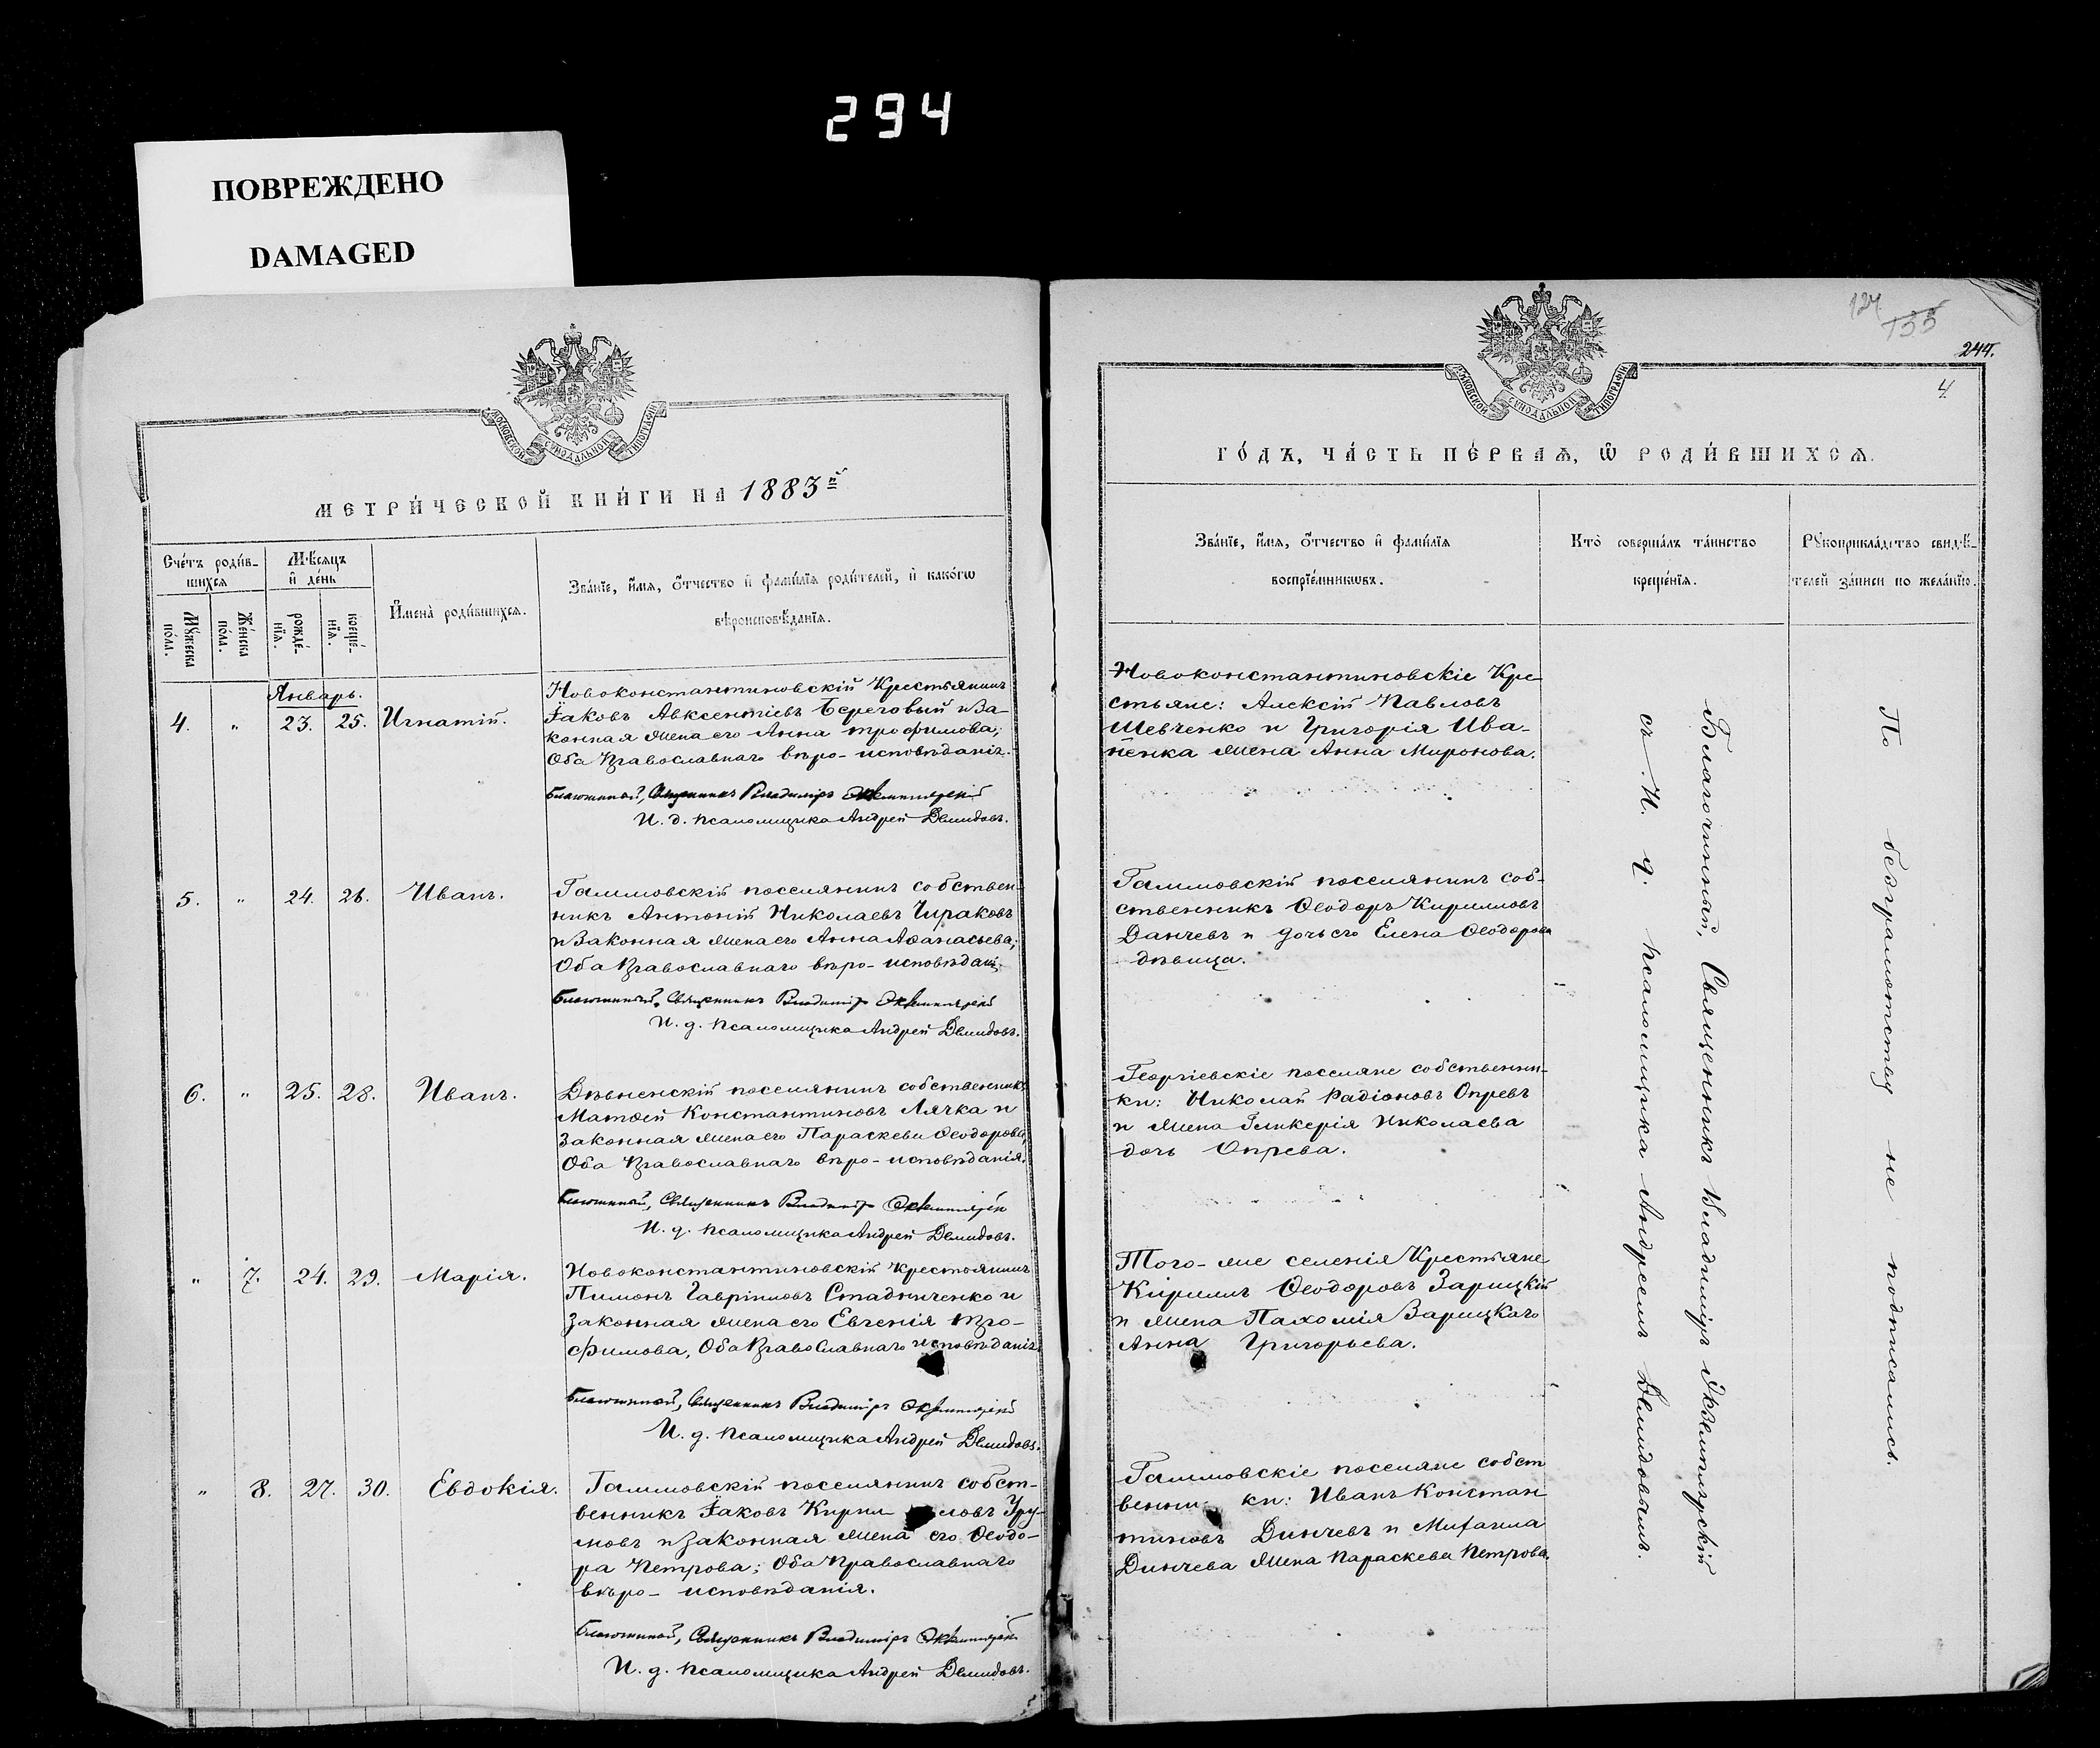 294
ПОВРЕЖДЕНО
DAMAGED
МОСКОВСКОЙ СѴНОДАЛЬНОЙ ТИПОГРАФІИ
МЕТРИ́ЧЕСКОЙ КНИ́ГИ НА 1883й
Сче́тъ роди́в-
шихся
Мѣ́сяцъ
и де́нь
Му́жеска
по́ла.
Же́нска
по́ла.
рожде́-
нїя.
креще́-
нїя.
Имена̀ роди́вшихся.
Зва́нїе, и́мя, о́тчество и фами́лїя роди́телей, и како́гѡ
вѣроисповѣ́данїя.
Январь.
4. " 23. 25. Игнатій.
Новоконстантиновскій Крестьянинъ
Іаковъ Авксентіевъ Береговый и за-
конная жена его Анна Трофимова;
Оба Православнаго вѣро-исповѣданія.
Благочинный, Священникъ Владиміръ Экземплярскій
И. д. псаломщика Андрей Демидовъ.
5. " 24. 26. Иванъ.
Галиловскій поселянинъ собствен-
никъ Антоній Николаевъ Чираковъ
и законная жена его Анна Аѳанасьева;
Оба Православнаго вѣро-исповѣданія.
Благочинный, Священникъ Владиміръ Экземплярскій
И. д. псаломщика Андрей Демидовъ.
6. " 25. 28. Иванъ.
поселянинъ собственникъ
Матѳей Константиновъ Лячка и
законная жена его Параскева Ѳеодорова,
Оба Православнаго вѣро-исповѣданія.
Благочинный, Священникъ Владиміръ Экземплярскій
И. д. псаломщика Андрей Демидовъ.
" 7. 24. 29. Марія.
Новоконстантиновскій крестьянинъ
Пимонъ Гавріиловъ Стадниченко и
законная жена его Евгенія Тро-
фимова, Оба Православнаго исповѣданія.
Благочинный, Священникъ Владиміръ Экземплярскій
И. д. псаломщика Андрей Демидовъ.
" 8. 27. 30. Евдокія.
поселянинъ собст-
венникъ Іаковъ Кирилловъ Гру-
новъ и законная жена его Ѳеодо-
ра Петрова; Оба Православнаго
вѣро-исповѣданія.
Благочинный, Священникъ Владиміръ Экземплярскій
И. д. псаломщика Андрей Демидовъ.
124
155
244.
4
МОСКОВСКОЙ СѴНОДАЛЬНОЙ ТИПОГРАФІИ
ГО́ДЪ, ЧА́СТЬ ПЕ́РВАЯ, Ѡ РОДИ́ВШИХСЯ.
Зва́нїе, и́мя, о́тчество и фами́лїя
воспрїе́мниковъ.
Кто̀ соверша́лъ та́инство
креще́нїя.
Рꙋкоприкла́дство свидѣ́-
телей за́писи по жела́нїю.
Новоконстантиновскіе Кре
стьяне: Алексій Павловъ
Шевченко и Григорія Ива-
ненка жена Анна Миронова.
поселянинъ соб-
ственникъ Ѳеодоръ Кирилловъ
Данчевъ и дочь его Елена Ѳеодорова
дѣвица.
Георгіевскіе поселяне собственни-
ки: Николай Радіоновъ Опревъ
и жена Гликерія Николаева
дочь Опрева.
Того-же селенія Крестьяне
Кириллъ Ѳеодоровъ Зарицкій
и жена Пахомія Зарицкаго
Анна Григорьева.
поселяне собст
венни- ки: Иванъ Констан
тиновъ Динчевъ и Михаила
Динчева жена Параскева Петрова.
Благочинный, Священникъ Владиміръ Экземплярскій
съ И. д. псаломщика Андреемъ Демидовымъ.
По безграмотству не подписались.